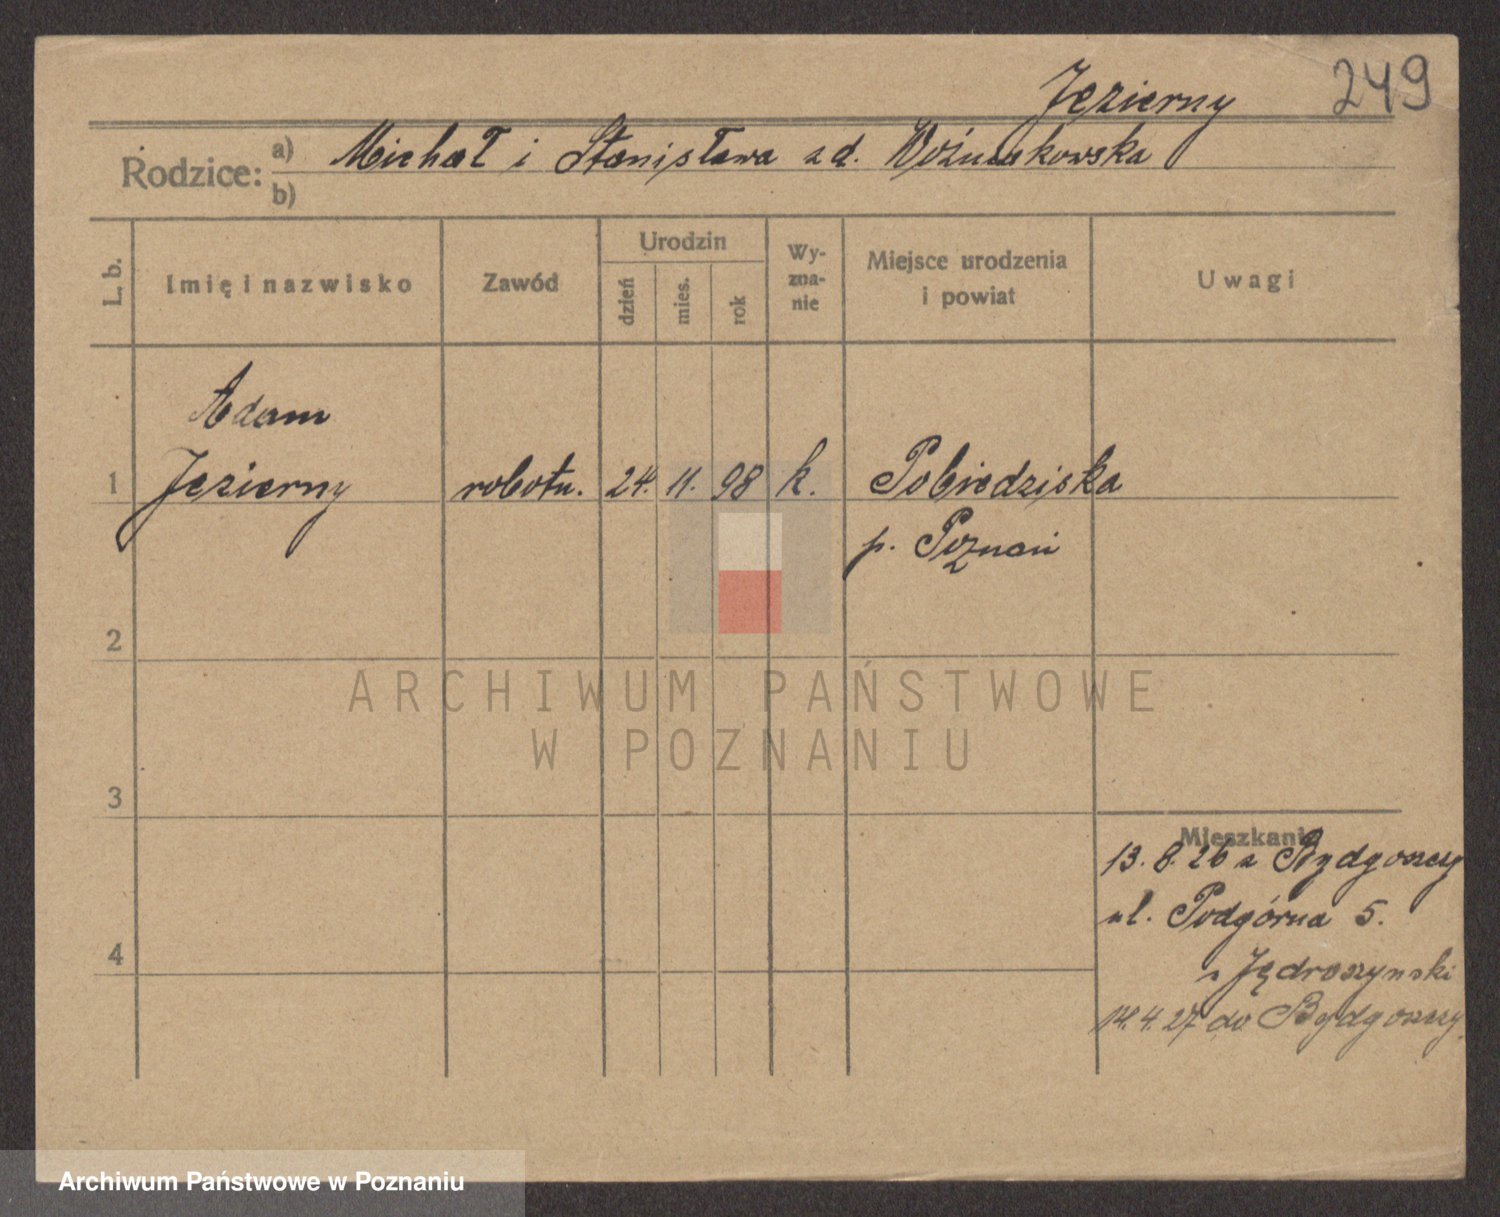 Jezierny 249
Rodzice: a) Michał i Stanisława z d. Woźniakowska
b)
L. b.
Imię i nazwisko
Zawód
Urodzin
dzień
mies.
rok
Wy-
zna-
nie
Miejsce urodzenia
i powiat
Uwagi
Adam
1 Jezierny robotn. 24. 11. 98 k. Pobiedziska
p. Poznań
2
ARCHIWUM PAŃSTWOWE
W POZNANIU
3
Mieszkanie
13. 8. 26 z Bydgoszczy
ul. Podgórna 5.
4
14. 4. 27 do Bydgoszczy
Archiwum Państwowe w Poznaniu